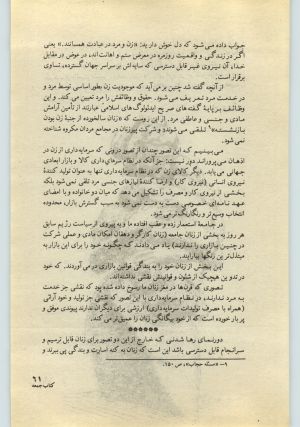 جواب داده می‌شود که دل خوش دار بده: «زن و مرد در عبادت همسانند.» یعنی
اگر در زندگی و واقعیت روزمره در معرض ستم و اهانت‌اند، در عوض در مقابل
خدا، آن نیروی غیر قابل دسترسی که سایه‌اش بر سراسر جهان گسترده، تساوی
برقرار است.
از آنچه گفته شد چنین بر می‌آید که موجودیت زن بطور اساسی توسط مرد و
در خدمت مرد تعریف می‌شود. حقوق و وظائفش را مرد تعیین می‌کند. و این
وظائف بر پایهٔ گفته‌های صریح ایدئولوگ‌های اسلامی عبارتند از تأمین آرامش
مادی و جنسی و عاطفی مرد. از این روست که «زنان سالخورده از جنبهٔ زن بودن
بازنشسته» تلقی می‌شوند و شرکت پیرزنان در مجامع مردان مکروه شناخته
نمی‌شود.
می‌بینیم که این تصور چندان از تصور درونی که سرمایه‌داری از زن در
اذهان می‌پروراند دور نیست: جز آنکه در نظام سرمایه‌داری کالا و بازار ابعادی
جهانی می‌یابد. دیگر کالای زن که در نظام سرمایه‌داری تنها به عنوان تولید کنندهٔ
نیروی انسانی (نیروی کار) و ارضا کنندهٔ نیازهای جنسی مرد تلقی نمی‌شود بلکه
بخشی از نیروی کار و مصرف را تشکیل می‌دهد که میان دو خانواده و با امضای
عهدنامه‌ای خصوصی دست به دست نمی‌شود به سبب گسترش بازار، محدوده
انتخاب وسیع‌تر و رنگارنگ‌تر می‌شود.
در جامعهٔ استعمار زده و عقب افتاده ما و به نیروی ارسیاست رژیم سابق
هر روزه به بخشی از زنان جامعه (زنان کارگر و دهقان امکان مادی و عملی شرکت
در چنین بازاری را ندارند) یاد می‌دادند که چگونه خود را برای این بازار به
مبتذل‌ترین رنگها بیارایند.
این بخش از زنان خود را به بندگی قوانین بازاری در می‌آوردند، که خود
در تدوین هیچیک از شئون و قوانینش نقشی نداشته‌اند.
تصوری که قرن‌ها در مغز زنان ما رسوخ داده شده بود که نقشی جز خدمت
به مرد ندارند، در نظام سرمایه‌داری با این تصور که نقشی جز تولید و خودآرائی
(همراه با مصرف تولیدات سرمایه‌داری) ارزشی برای دیگران ندارند پیوندی موفق و
پر بار خورده است که از خود بیگانگی زنان را عمیق‌تر می‌کند.
******
دورنمای رها شدنی که خارج از این دو تصور برای زنان قابل ترسیم و
سرانجام قابل دسترسی باشد این است که زنان به کنه اسارت و بندگی پی ببرند و
۱– «مسئله حجاب»، ص ۱۵۰.
۶۱
کتاب جمعه